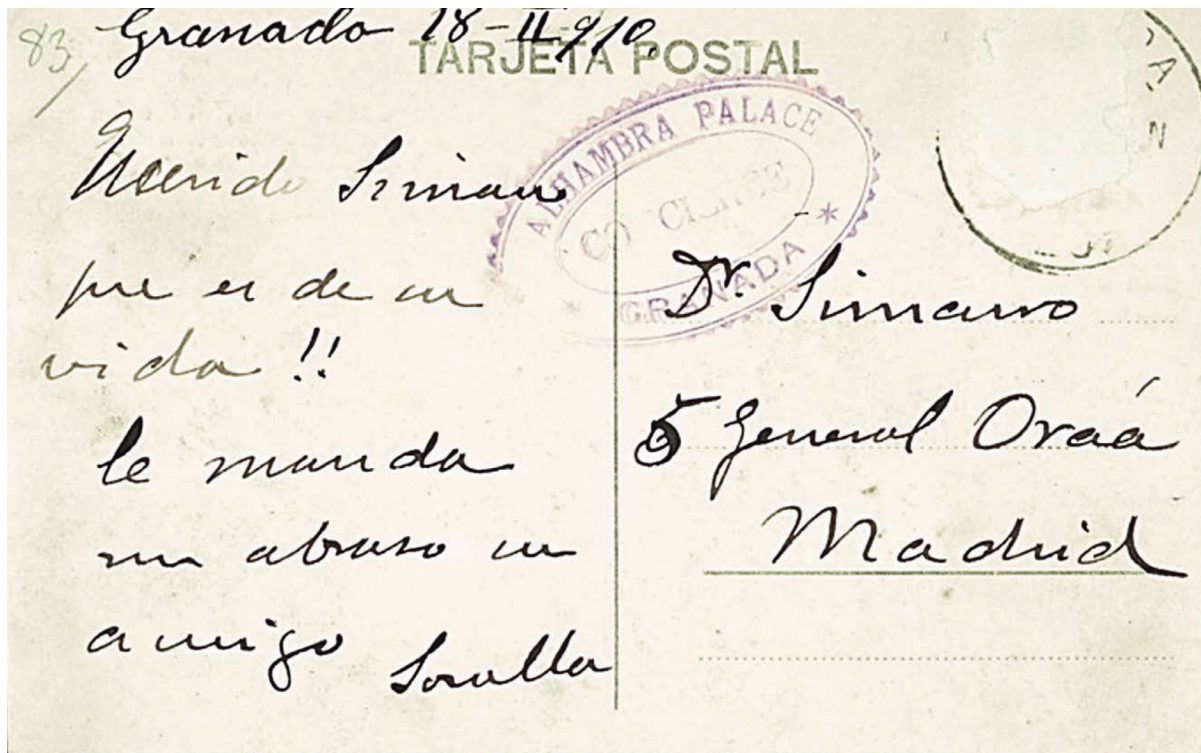 83
Granada 18-II-910
TARJETA POSTAL
ALHAMBRA PALACE
GRANADA
Querido Simarro
que es de su
vida !!
le manda
un abraso su
amigo Sorolla
Dr. Simarro
5 General Oraá
Madrid